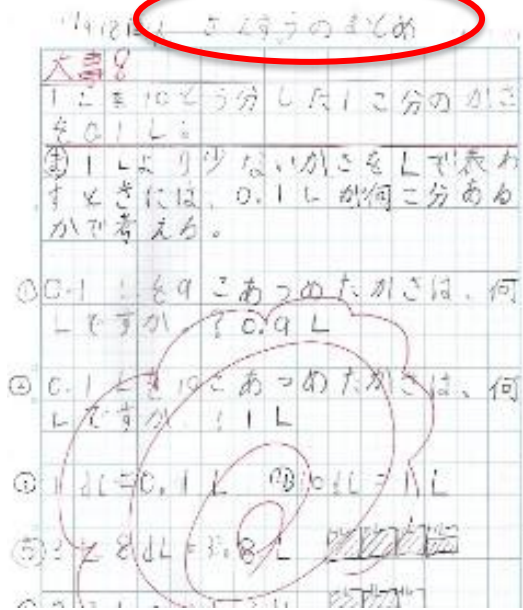 さんすうのまとめ
大事
1Lを10こう分した1こ分のかさ
を0.1L。
1Lより少ないかさをLで表わ
すときには、0.1Lが何こ分ある
かで考える。
① 0.1Lを9こあつめたかさは、何
Lですか。? 0.9L
② 0.1Lを10こあつめたかさは、何
Lですか。? 1L
1dL=0.1L 10dL=1L
8dL=3.8L